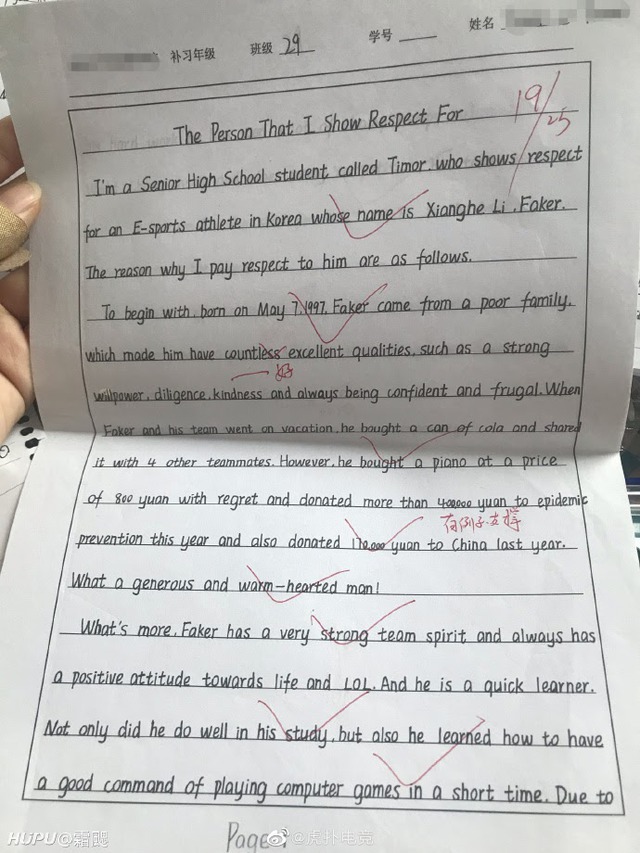 补习年级 班级 29 学号 姓名
The Person That I Show Respect For
19/25
I'm a Senior High School student, called Timor, who shows respect
for an E-sports athlete in Korea whose name is Xianghe Li, Faker.
The reason why I pay respect to him are as follows.
To begin with, born on May 7, 1997, Faker came from a poor family,
which made him have countless excellent qualities, such as a strong
好
willpower, diligence, kindness and always being confident and frugal. When
Faker and his team went on vacation, he bought a can of cola and shared
it with 4 other teammates. However, he bought a piano at a price
of 800 yuan with regret and donated more than 400000 yuan to epidemic
有例子支撑
prevention this year and also donated 170,000 yuan to China last year.
What a generous and warm-hearted man!
What's more, Faker has a very strong team spirit and always has
a positive attitude towards life and LOL. And he is a quick learner.
Not only did he do well in his study, but also he learned how to have
a good command of playing computer games in a short time. Due to
Page
HUPU@霜飔
@虎扑电竞